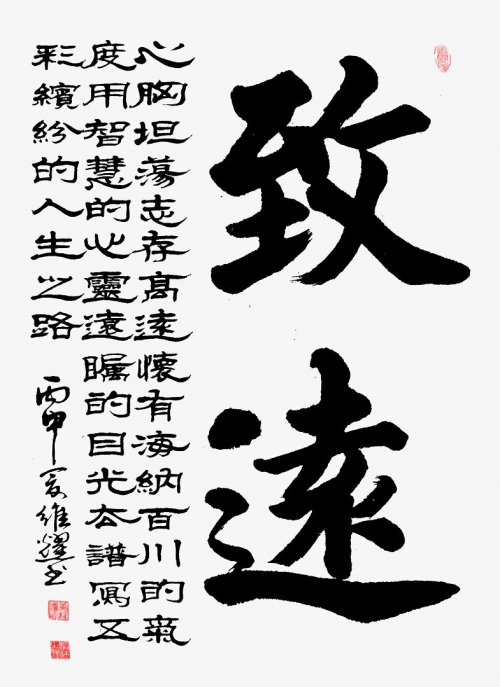 致遠
心胸坦蕩志存高遠懷有海納百川的氣
度用智慧的心靈遠矚的目光去譜寫五
彩繽紛的人生之路
丙申夏維耀書